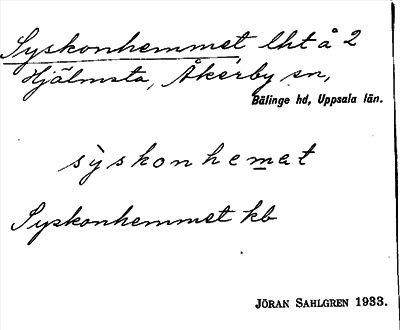 Syskonhemmet lht å 2
Hjälmsta, Åkerby sn,
Bälinge hd, Uppsala län.
sỳskonhem̲et
Syskonhemmet kb
JÖRAN SAHLGREN 1933.